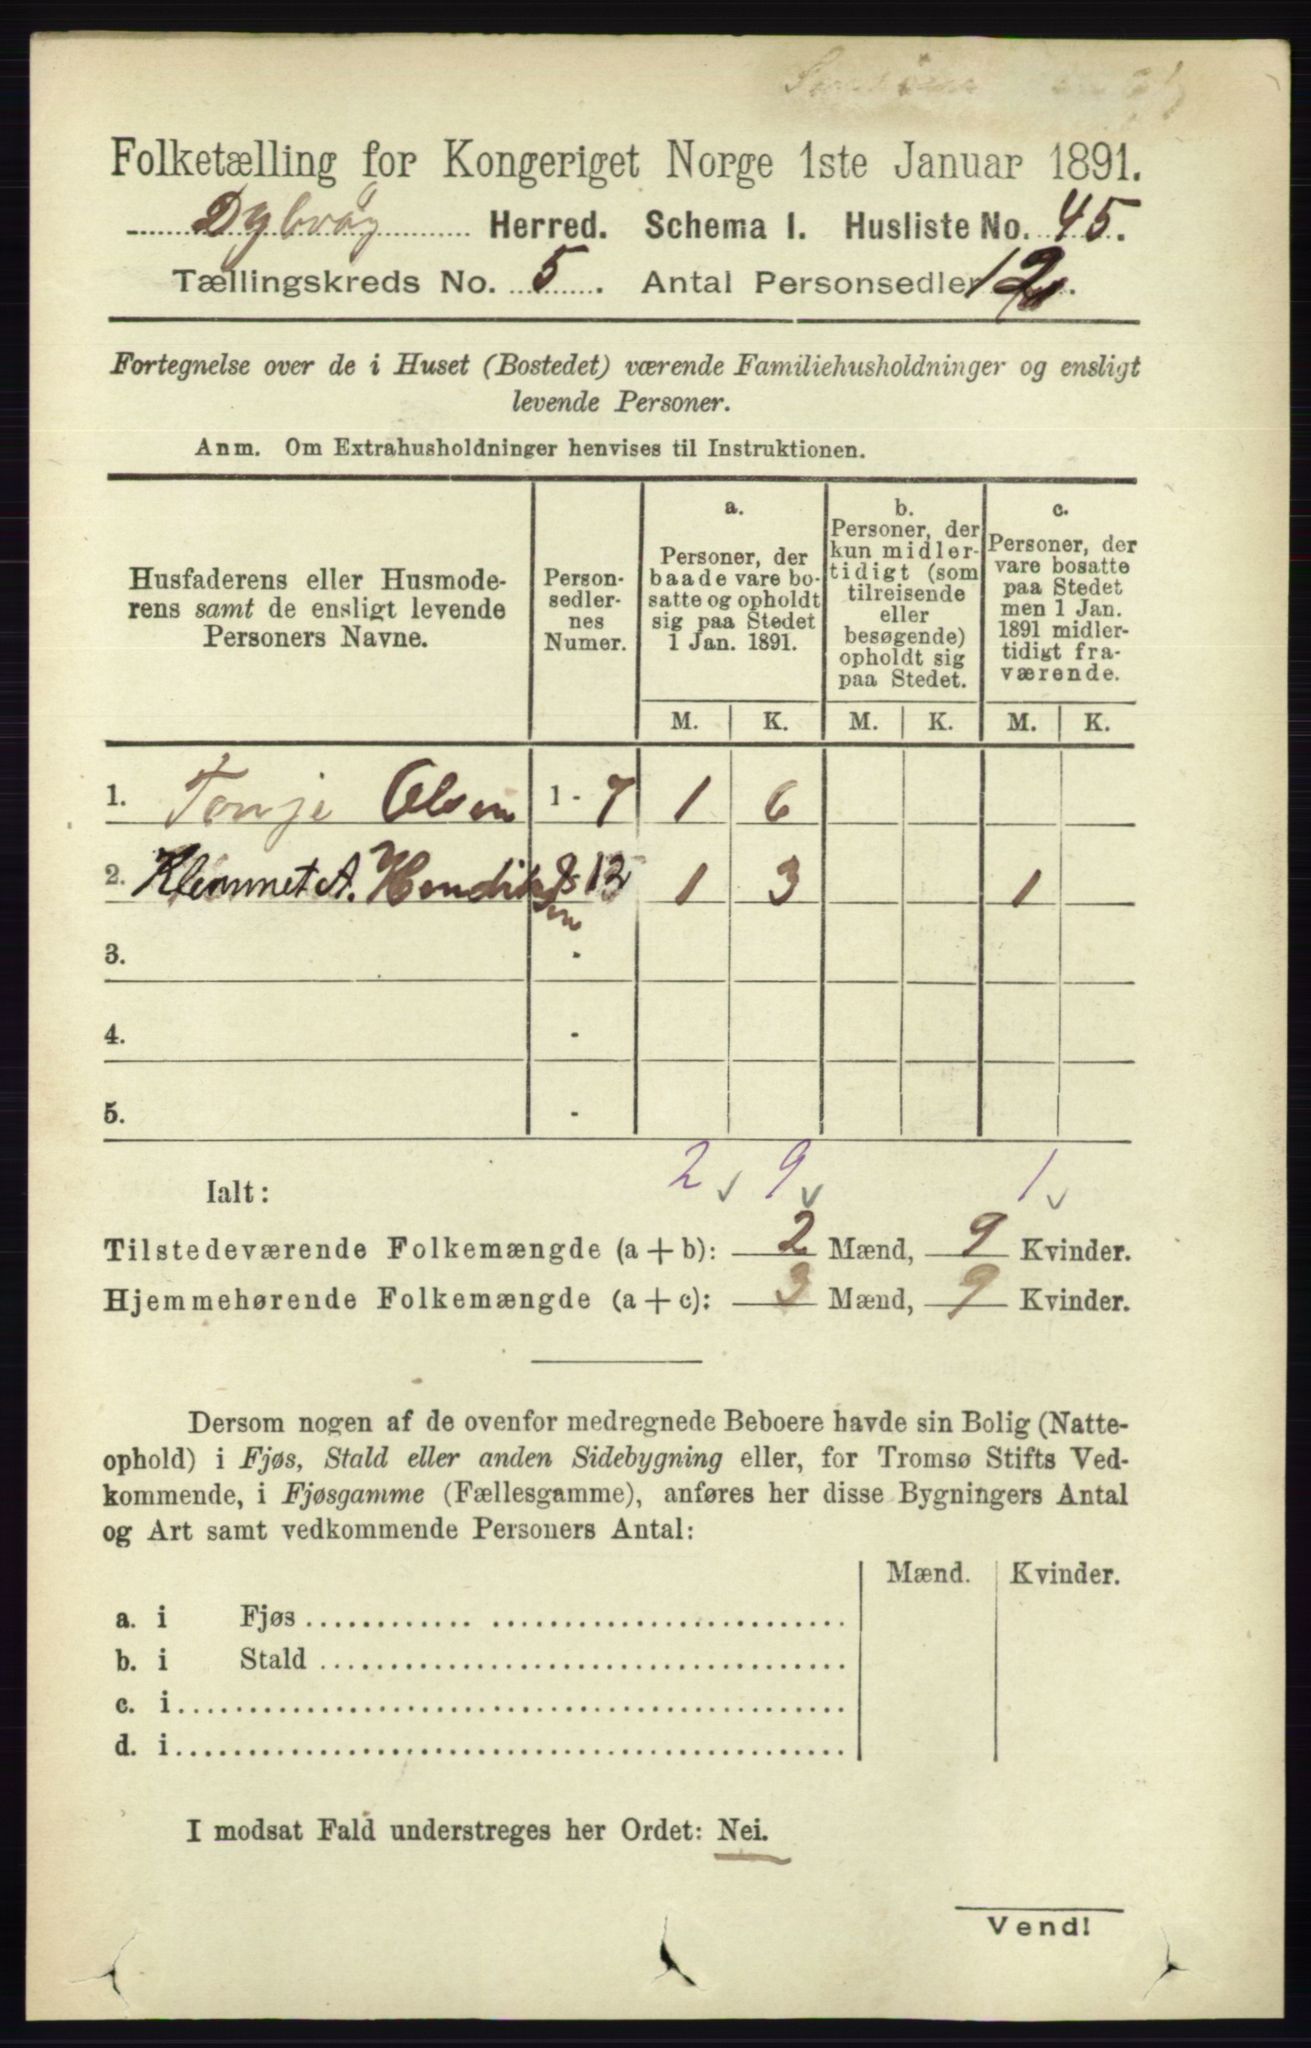 Folketælling for Kongeriget Norge 1ste Januar 1891.
Dybvåg Herred. Schema I. Husliste No. 45.
Tællingskreds No. 5. Antal Personsedler 12.
Fortegnelse over de i Huset (Bostedet) værende Familiehusholdninger og ensligt
levende Personer.
Anm. Om Extrahusholdninger henvises til Instruktionen.
Husfaderens eller Husmode-
rens samt de ensligt levende
Personers Navne.
Person-
sedler-
nes
Numer.
a.
Personer, der
baade vare bo-
satte og opholdt
sig paa Stedet
1 Jan. 1891.
b.
Personer, der
kun midler-
tidigt (som
tilreisende
eller
besøgende)
opholdt sig
paa Stedet.
c.
Personer, der
vare bosatte
paa Stedet
men 1 Jan.
1891 midler-
tidigt fra-
værende.
M. K. M. K. M. K.
1. Tonje Olsen 1 - 7 1 6
2. Klemmet A. Hendiksen 8 12 1 3 1
3. -
4. -
5. -
Ialt: 2 9 1
Tilstedeværende Folkemængde (a + b): 2 Mænd, 9 Kvinder.
Hjemmehørende Folkemængde (a + c): 3 Mænd, 9 Kvinder.
Dersom nogen af de ovenfor medregnede Beboere havde sin Bolig (Natte-
ophold) i Fjøs, Stald eller anden Sidebygning eller, for Tromsø Stifts Ved-
kommende, i Fjøsgamme (Fællesgamme), anføres her disse Bygningers Antal
og Art samt vedkommende Personers Antal:
Mænd. Kvinder.
a. i Fjøs
b. i Stald
c. i
d. i
I modsat Fald understreges her Ordet: Nei.
Vend!